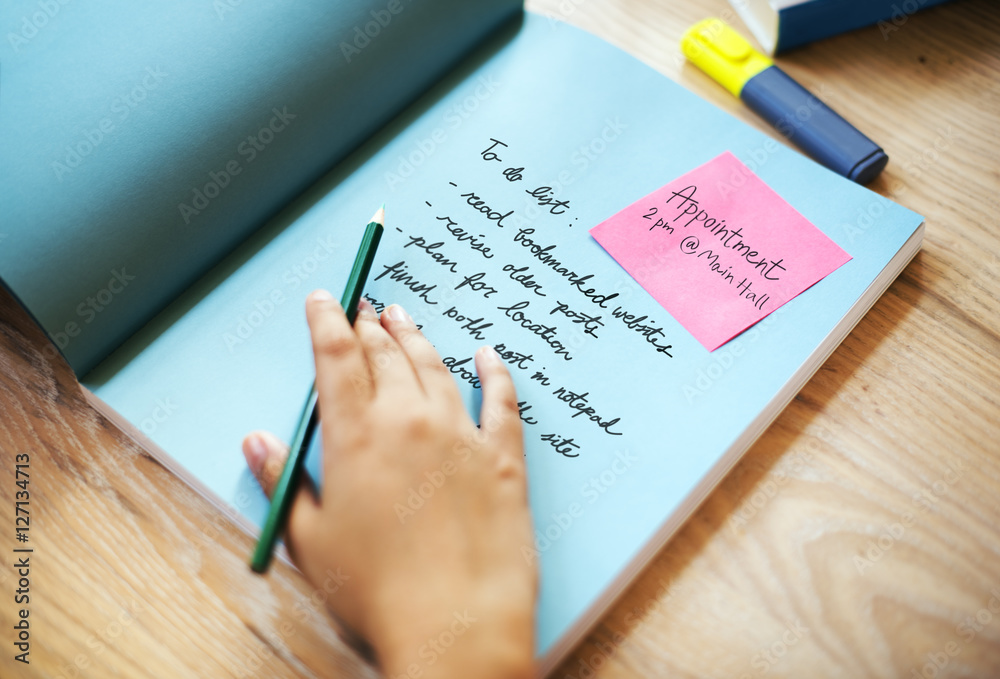 To do list:
- read bookmarked websites
- revise older posts
- plan for location
finish both post in notepad
about the site
Appointment
2pm @ Main Hall
Adobe Stock | #127134713
Adobe Stock